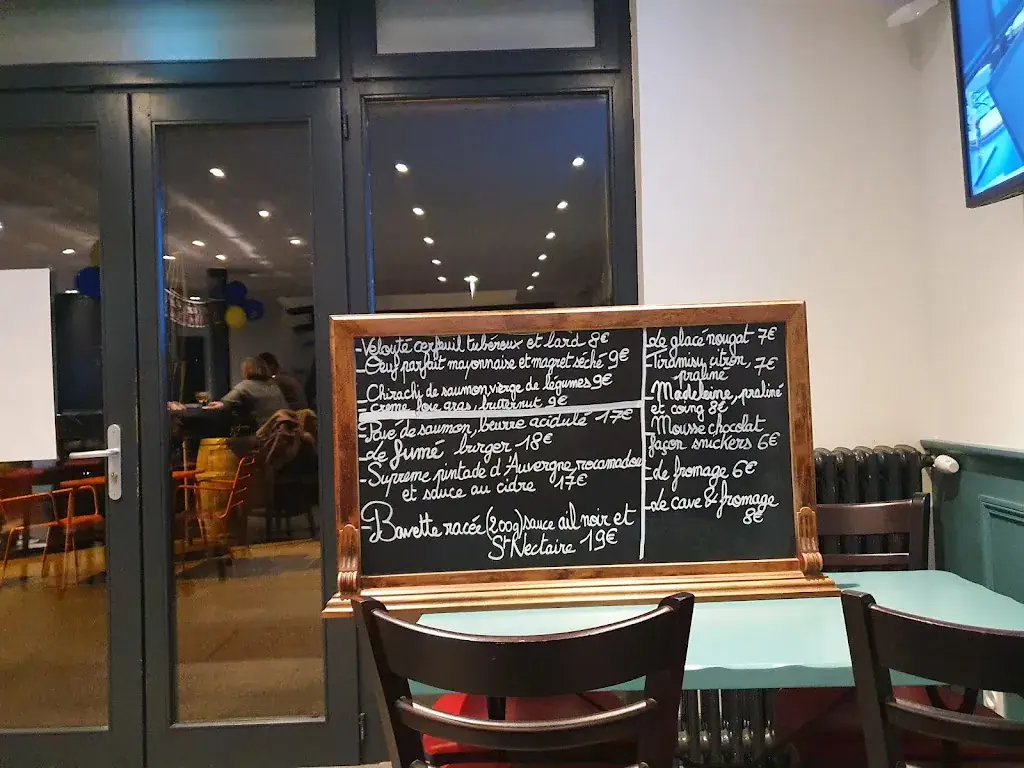 -Velouté cerfeuil tubéreux et lard 8€
-Oeuf parfait mayonnaise et magret séché 9€
-Chirachi de saumon, vierge de légumes 9€
-Crème foie gras, butternut 9€
-Pavé de saumon, beurre acidulé 17€
-de fumé burger -18€
-Supreme pintade d'Auvergne, rocamadour
et sauce au cidre 17€
-Bavette racée (200g) sauce ail noir et
St Nectaire 19€
-de glacé nougat 7€
-Tiramisu, citron, 7€
praliné
-Madeleine, praliné
et coing 8€
-Mousse chocolat
façon snickers 6€
-de fromage 6€
-de cave & fromage
8€